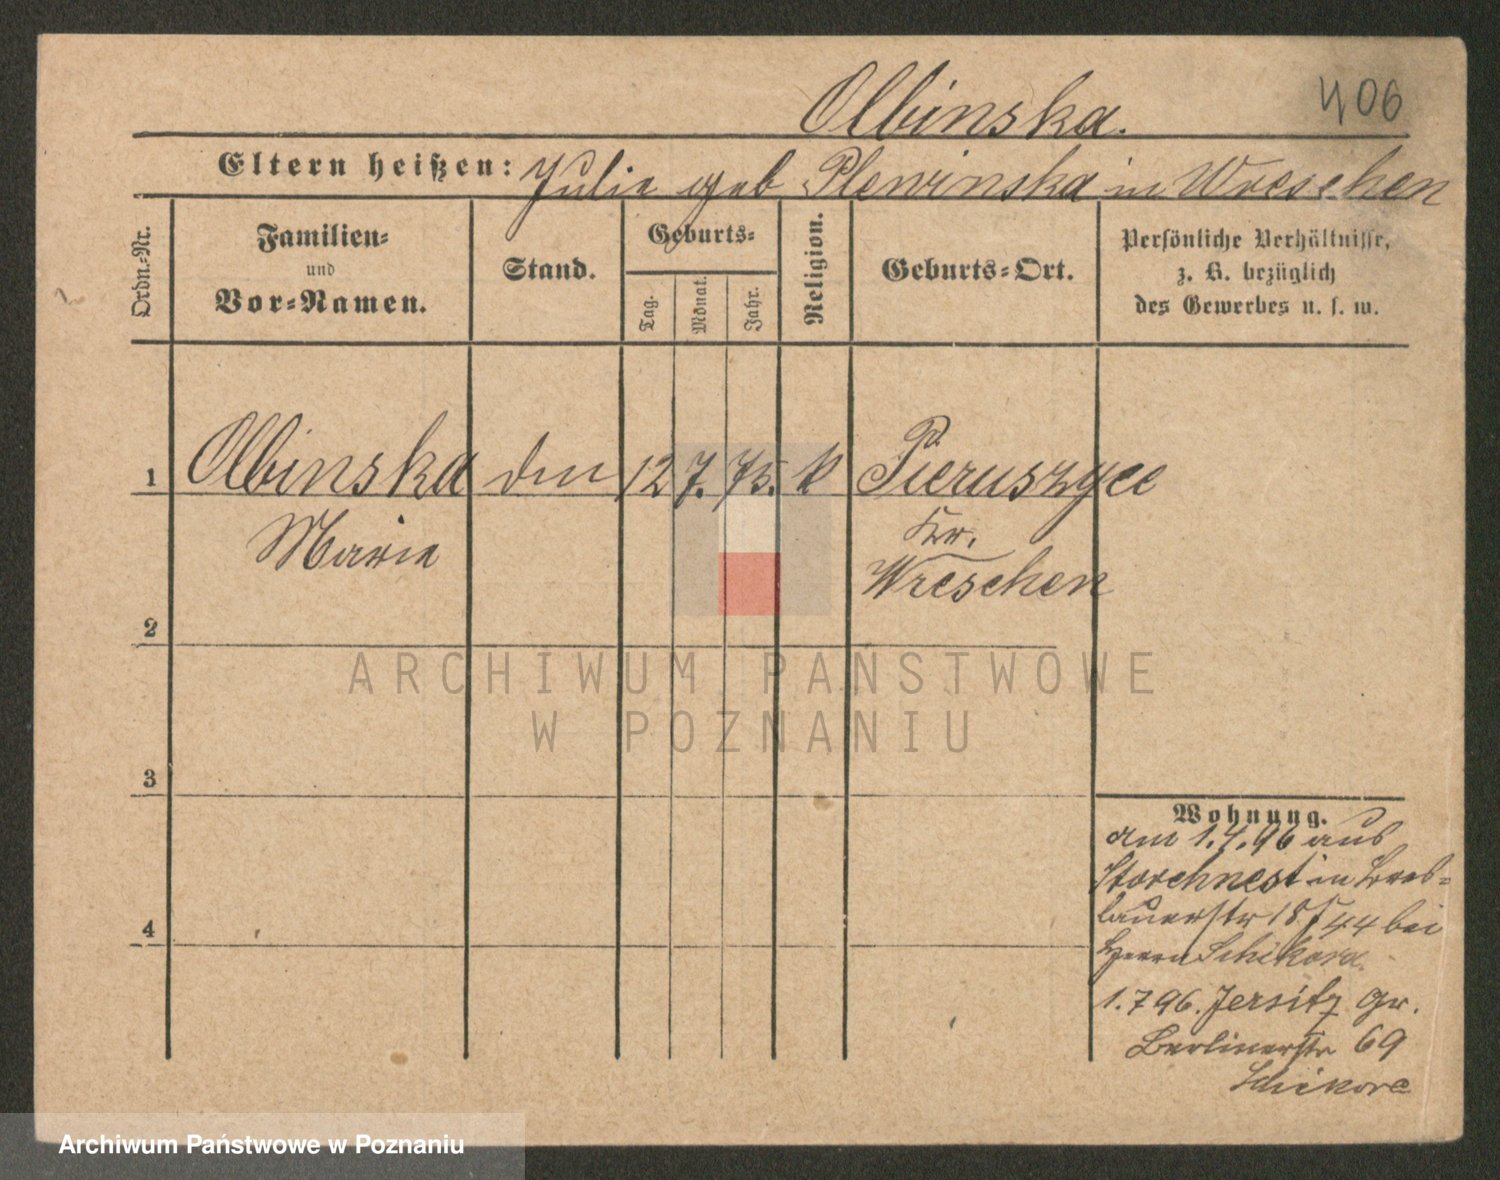 406
Olbinska.
Eltern heißen: Julie geb Plewinska in Wreschen
Ordn.-Nr.
Familien-
und
Vor-Namen.
Stand.
Geburts-
Tag.
Monat.
Jahr.
Religion.
Geburts-Ort.
Persönliche Verhältnisse,
z. B. bezüglich
des Gewerbes u. s. w.
1 Olbinska 12 7. 75. k Pieruszyce
Marie
Kr.
Wreschen
2
3
4
Wohnung.
am 1.4.96 aus
Storchnest in Bres-
lauerstr 18 bei
Herrn Schikora.
1.7 96. Jersitz Gr.
Berlinerstr 69
Schikore
ARCHIWUM PAŃSTWOWE
W POZNANIU
Archiwum Państwowe w Poznaniu